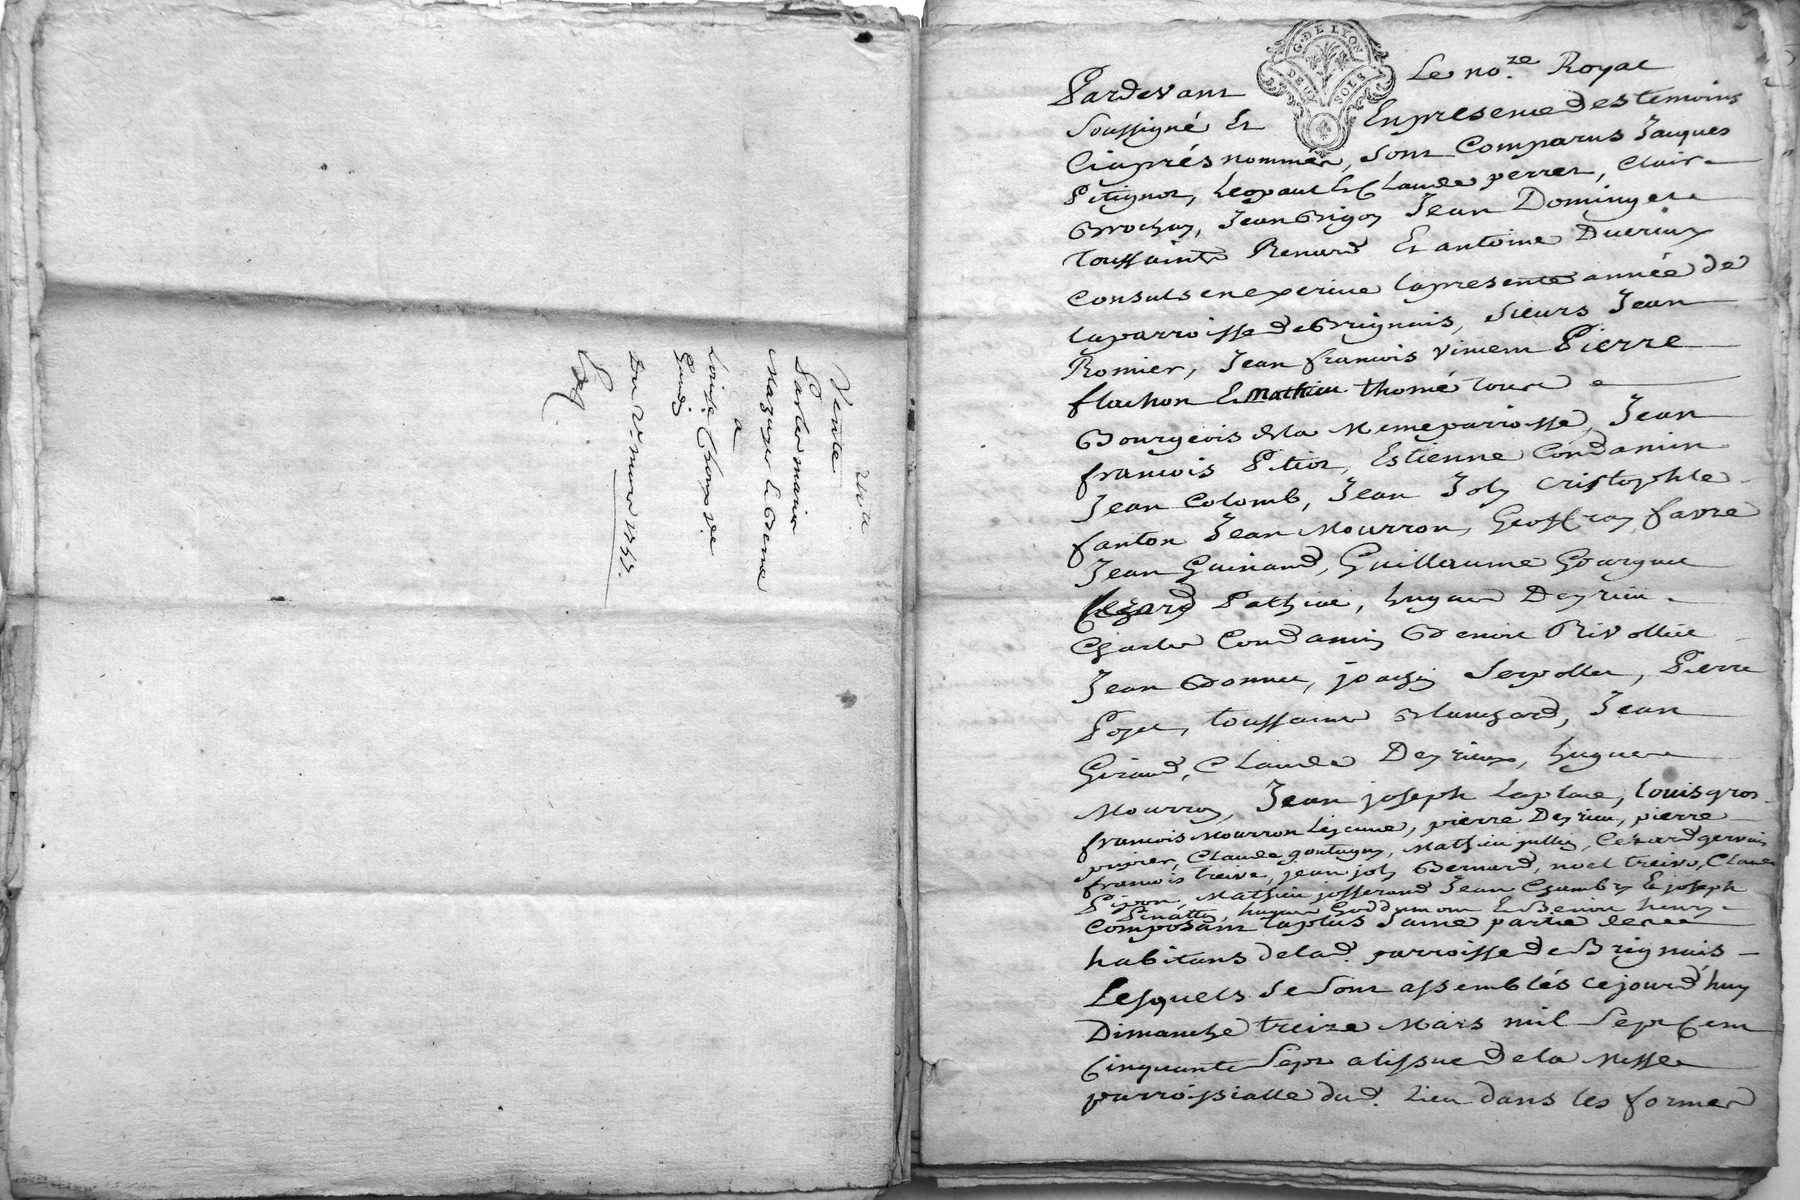 Vente
Par les mariés
a
G. DE LYON
DEUX SOLS
Pardevant Le no.re Royal
Soussigné Et En presence des temoins
Ciaprés nommés, sont Comparus Jacques
Pitignot, Claude perret, Claire
Brochay, Jean Brigoy Jean Domingere
toussainte Renard Et antoine Duerieux
Consuls en exercice la presente année de
la parroisse de Brignais, sieurs Jean
Romier, Jean francois vincent Pierre
flachon Et Mathieu thomé tous
Bourgeois de la Meme parroisse, Jean
francois Pitiot, Estienne Condamin
Jean Colomb, Jean Joly Cristophle
fanton Jean Mourron, Geoffray favre
Jean Guinand, Guillaume Gourgue
Cezard Pathieu, hugues Deyrieu
Charles Condamin Benoit Rivollie
Jean Bonnet, joachin Serpollet, Pierre
Poget, toussaint Blanchard, Jean
Giraud, Claude Deyrieux, hugues
Mourroy, Jean joseph Laplace, louis gros
francois Mourron Lejeune, pierre Deyrieu, pierre
Claude Mathieu jullien, Cezard gervais
francois treive, jean joly Bernard, noel treive, Claude
Pigon, Mathieu josserand Jean Chamby Et joseph
Pinatty, hugues Et Benoit henry
Composant la plus saine partie de ces
habitans de lad. parroisse de Brignais
Lesquels se sont assemblés cejourd'huy
Dimanche treize Mars mil Sept Cent
Cinquante Sept a lissue de la Messe
parroissialle dud. Lieu dans les formes